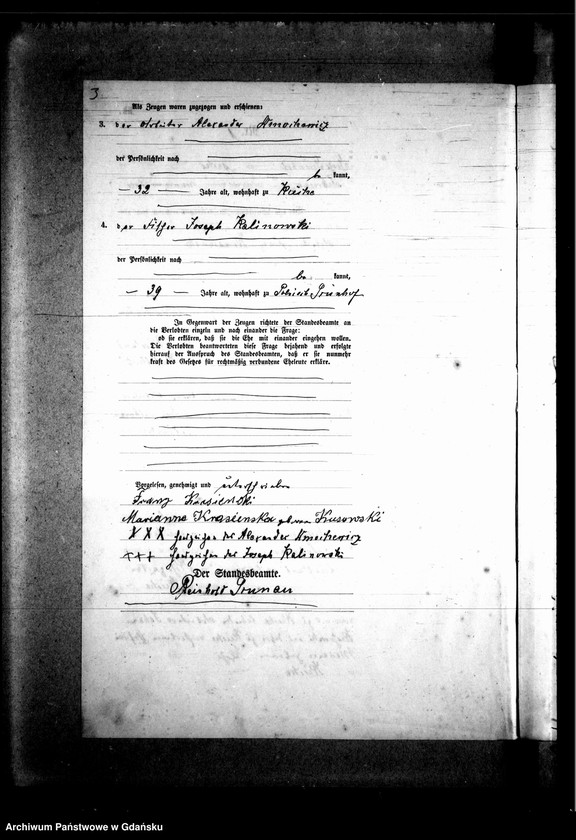 3
Als Zeugen waren zugezogen und erschienen:
3. der Arbeiter Alexander
der Persönlichkeit nach
be kannt,
— 32 — Jahre alt, wohnhaft zu
4. der Fischer Joseph Kalinowski
der Persönlichkeit nach
be kannt,
— 39 — Jahre alt, wohnhaft zu
In Gegenwart der Zeugen richtete der Standesbeamte an
die Verlobten einzeln und nach einander die Frage:
ob sie erklären, daß sie die Ehe mit einander eingehen wollen.
Die Verlobten beantworteten diese Frage bejahend und erfolgte
hierauf der Ausspruch des Standesbeamten, daß er sie nunmehr
kraft des Gesetzes für rechtmäßig verbundene Eheleute erkläre.
Vorgelesen, genehmigt und unterschrieben
Franz Krasienski
Marianna Krasienska geborene Kusowski
XXX Handzeichen des Alexander
+++ Handzeichen des Joseph Kalinowski
Der Standesbeamte.
Reinhold Grunau
Archiwum Państwowe w Gdańsku